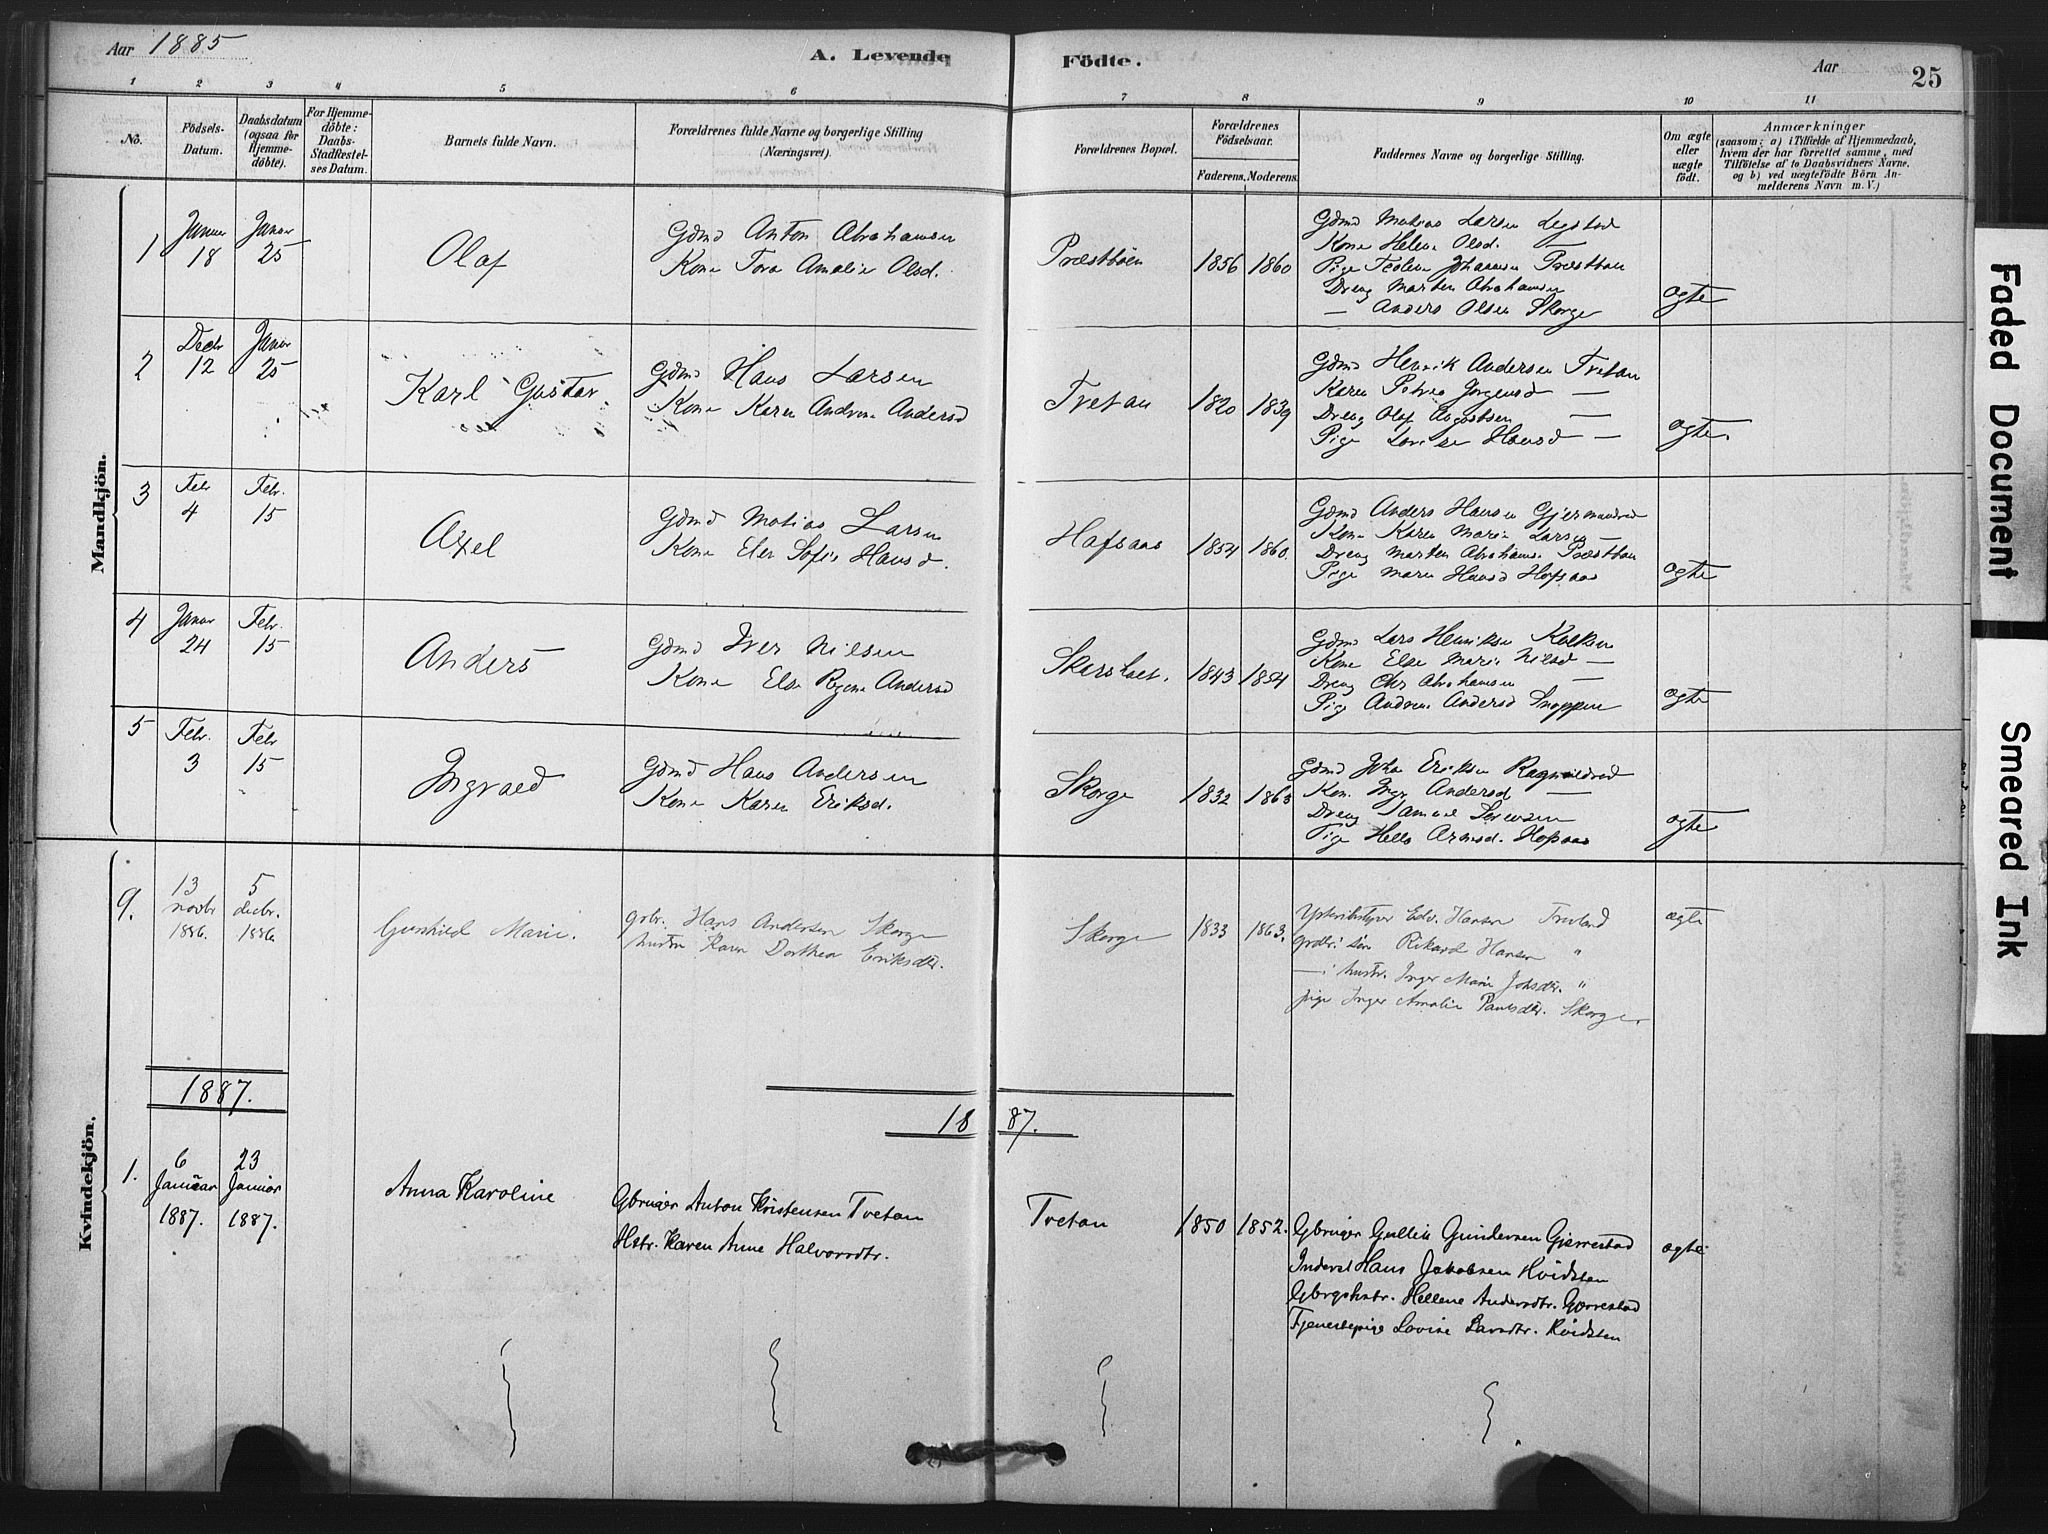 Aar 1885
A. Levende Födte.
Aar
25
1 2 3 4 5 6 7 8 9 10 11
No.
Födsels-Datum.
Daabsdatum (ogsaa for Hjemme-döbte).
For Hjemme-döbte: Daabs-Stadfæstel-ses Datum.
Barnets fulde Navn.
Forældrenes fulde Navne og borgerlige Stilling (Næringsvei).
Forældrenes Bopæl.
Forældrenes Födselsaar.
Faderens. Moderens.
Faddernes Navne og borgerlige Stilling.
Om ægte eller uægte födt.
Anmærkninger
(saasom: a) i Tilfælde af Hjemmedaab, hvem der har forrettet samme, med Tilföielse af to Daabsvidners Navne, og b) ved uægtefödte Börn An-melderens Navn m. V.)
Mandkjön.
1
Januar 18
Januar 25
Olaf
Gdmd Anton Abrahamsen
Kone Tora Amalie Olsd.
Præstbøen
1856 1860
Gdmd Matias Larsen
Kone Helene Olsd.
Pige Johannesen Præstbøen
Dreng Marten Abrahamsen
— Anders Olsen Skorge
ægte
2
Decbr 12
Januar 25
Karl Gustav.
Gdmd Hans Larsen
Kone Karen Andrine Andersd
Tvetan
1820 1839
Gdmd Henrik Andersen Tvetan
Karen Petrea Jørgensd —
Dreng Olaf Augustsen —
Pige Lovise Hansd —
ægte.
3
Febr 4
Febr. 15
Axel
Gdmd Matias Larsen
Kone Else Sofie Hansd.
Hafsaas
1854 1860.
Gdmd Anders Hansen Gjermundrød
Kone Karen Marie Larsen —
Dreng Marten Abrahams. Præstbøen
Pige Maren Hansd Hofsaas
ægte
4
Januar 24
Febr. 15
Anders
Gdmd Iver Nilsen
Kone Else Regine Andersd
1843 1854
Gdmd Lars Henriksen
Kone Else Marie Nilsd —
Dreng Chr Abrahamsen —
Pige Andrine Andersd
ægte
5
Febr. 3
Febr 15
Ingvald
Gdmd Hans Andersen
Kone Karen Eriksd.
Skorge
1832 1863
Gdmd Johan Eriksen
Kon. Inger Andersd —
Dreng Samuel Sørensen
Pige Helle Hofsaas
ægte
Kvindekjön.
9.
13 novbr 1886.
5 decbr. 1886
Gunhild Marie.
grbr. Hans Andersen Skorge
hustru Karen Dorthea Eriksdtr.
Skorge
1833 1863.
Edv. Hansen
grdbr. søn Rikard Hansen "
— hustr. Inger Marie Johsdtr. "
pige Inger Amalie Paulsdtr. Skorge.
ægte
1887.
1887.
1.
6 Januar 1887.
23 Januar 1887.
Anna Karoline
Gbruger Anton Kristensen Tvetan
Hstr. Karen Anne Halvorsdtr.
Tvetan
1850 1852.
Gbruger Gullik Gundersen Gjerrestad
Inderst Hans Jakobsen Hvidsten
Gbrgshstr. Hellene Andersdtr. Gjerrestad
Tjenestepige Lovise Larsdtr. Hvidsten
ægte
Faded Document
Smeared Ink